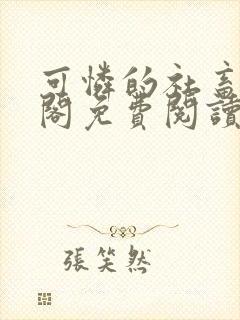 可憐的社畜
閣免費閱讀
張笑然